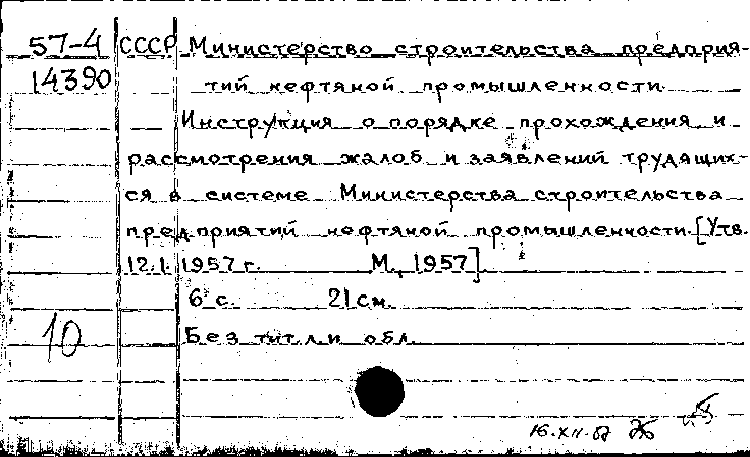 57-4 СССР Министерство строительства предприя-
14390 тий нефтяной промышленности.
Инструкция о порядке прохождения и
рассмотрения жалоб и заявлений трудящих-
ся в системе Министерства строительства
предприятий нефтяной промышленности. [Утв.
12.I.1957 г. М., 1957].
6 с. 21 см.
10 Без тит. л. и обл.
16.XII.57